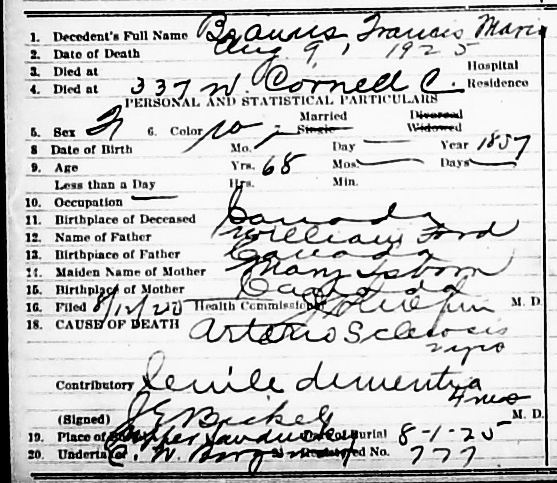 1. Decedent's Full Name Francis Marie
2. Date of Death Aug 9, 1925
3. Died at Hospital
4. Died at 337 W. Cornell C. Residence
PERSONAL AND STATISTICAL PARTICULARS
5. Sex 6. Color Married Single Divorced Widowed
8 Date of Birth Mo. Day Year 1857
9. Age Yrs. 68 Mos. Days
Less than a Day Hrs. Min.
10. Occupation
11. Birthplace of Deceased Canada
12. Name of Father William Ford
13. Birthplace of Father Canada
14. Maiden Name of Mother Mary
15. Birthplace of Mother Canada
16. Filed 8/12/25 Health Commissioner M. D.
18. CAUSE OF DEATH Arterio Sclerosis
2 yrs
Contributory Senile dementia
4 mos
(Signed) M. D.
19. Place of Upper Sandusky of Burial 8-1-25
20. Undertaker C. W. No. 777